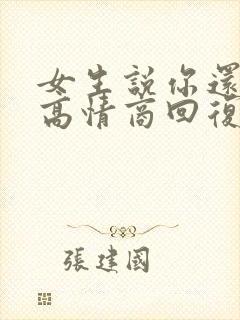 女生說你還
高情商回復
張建國